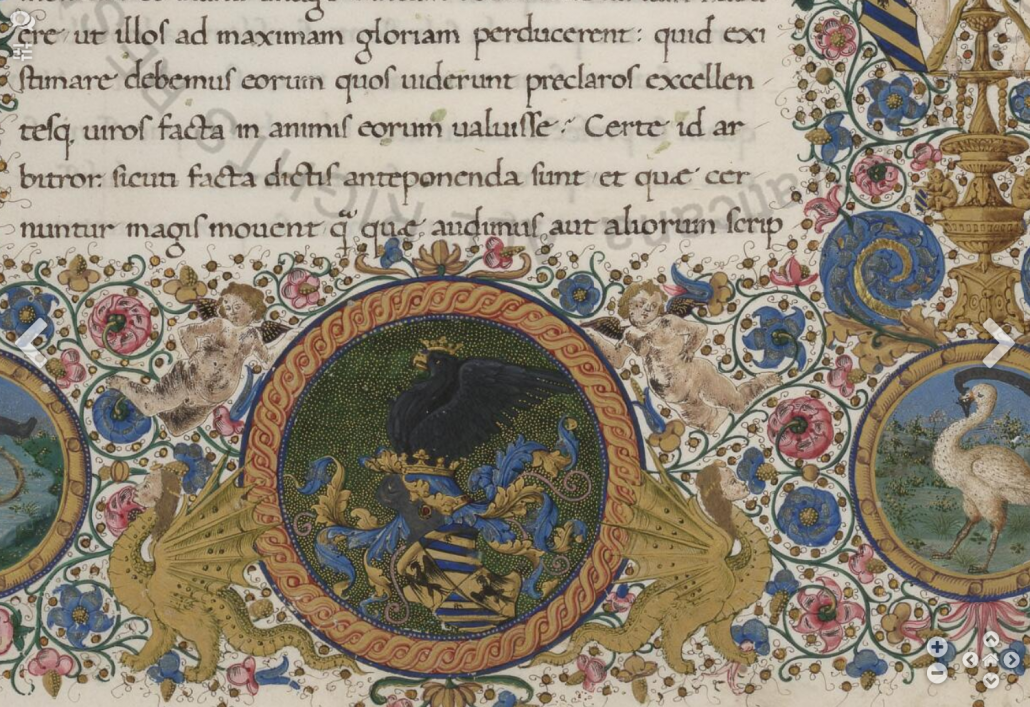 ere ut illoſ ad maximam gloriam perducerent: quid exi
ſtimare debemuſ eorum quoſ uiderunt preclaroſ excellen
teſq. uiroſ facta in animiſ eorum ualuiſſe: Certe id ar
bitror: ſicuti facta dictiſ anteponenda ſunt et quæ cer
nuntur magiſ mouent q̃ quæ audimuſ aut aliorum ſcrip